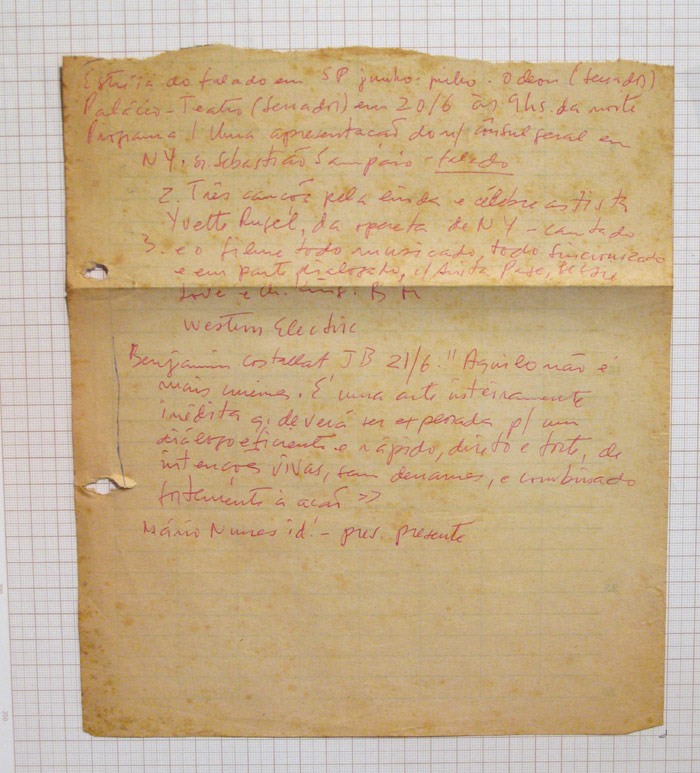 Estréia do falado em SP junho-julho. Odeon (Serrador)
Palácio-Teatro (Serrador) em 20/6 às 9hs. da noite
Programa 1 Uma apresentação do n/ cônsul geral em
NY. sr Sebastião Sampaio - falado
2. Três canções pela linda e célebre artista
Yvette Rugél, da opereta de NY - cantado
3. e o filme todo musicado, todo sincronizado
e em parte dialogado, c/ Anita Page, Bessie
Love e Ch. King. B M
Western Electric
Benjamin Costallat JB 21/6. "Aquilo não é
mais cinema. É uma arte inteiramente
inédita q. deverá ser explorada p/ um
diálogo eficiente e rápido, direto e forte, de
intenções vivas, sem derrames, e combinado
fortemente à ação >>
Mário Nunes id. - pres. presente